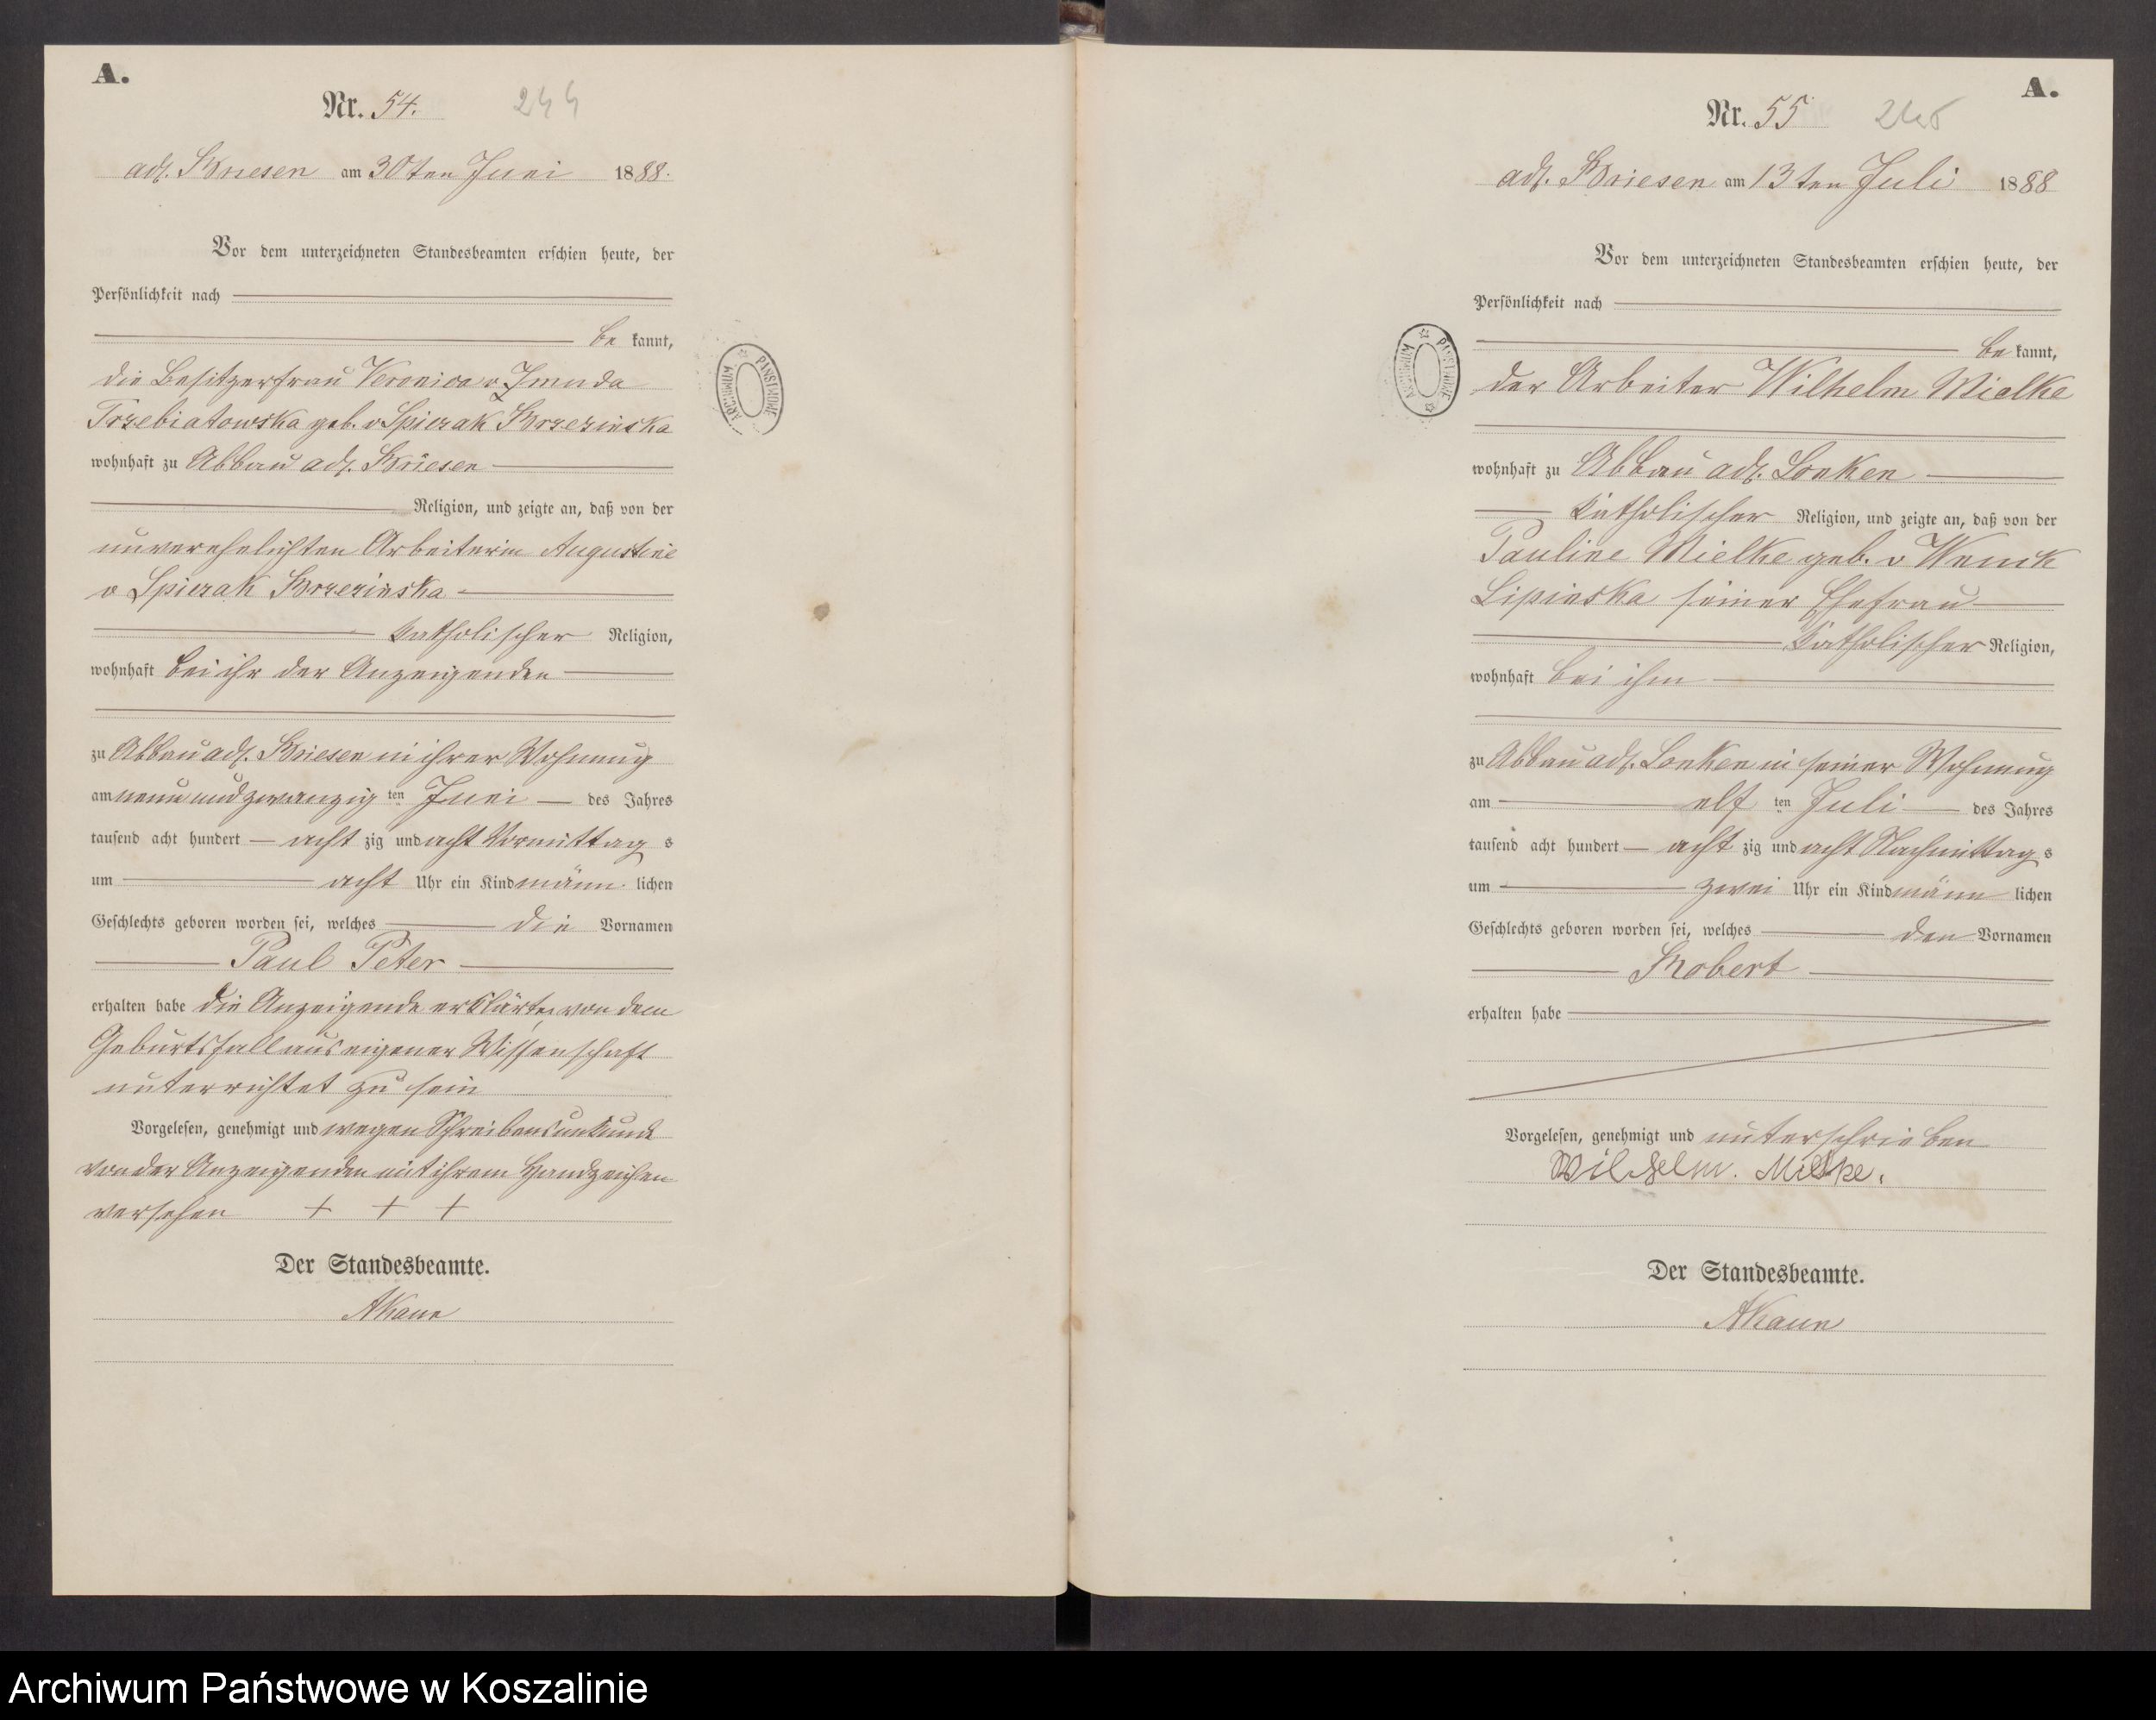 A.
Nr. 54. 244
adl. Briesen am 30ten Juni 1888.
Vor dem unterzeichneten Standesbeamten erschien heute, der
Persönlichkeit nach
be kannt,
die Besitzerfrau Veronica v Zmuda
Trzebiatowska geb. v Spiczak Brzezinska
wohnhaft zu Abbau adl. Briesen
Religion, und zeigte an, daß von der
unverehelichten Arbeiterin Augustine
v Spiczak Brzezinska
katholischer Religion,
wohnhaft bei ihr der Anzeigenden
zu Abbau adl. Briesen in ihrer Wohnung
am neun und zwanzig ten Juni des Jahres
tausend acht hundert acht zig und acht Vormittag s
um acht Uhr ein Kind männ lichen
Geschlechts geboren worden sei, welches die Vornamen
Paul Peter
erhalten habe die Anzeigende erklärte, von dem
Geburtsfall aus eigener Wissenschaft
unterrichtet zu sein
Vorgelesen, genehmigt und wegen Schreibensunkunde
von der Anzeigenden mit ihrem Handzeichen
versehen + + +
Der Standesbeamte.
AKaun
ARCHIWUM PAŃSTWOWE
A.
Nr. 55 245
adl. Briesen am 13ten Juli 1888
Vor dem unterzeichneten Standesbeamten erschien heute, der
Persönlichkeit nach
be kannt,
der Arbeiter Wilhelm Mielke
wohnhaft zu Abbau adl. Lonken
katholischer Religion, und zeigte an, daß von der
Pauline Mielke geb. v Wenck
Lipinska seiner Ehefrau
katholischer Religion,
wohnhaft bei ihm
zu Abbau adl. Lonken in seiner Wohnung
am elf ten Juli des Jahres
tausend acht hundert acht zig und acht Nachmittag s
um zwei Uhr ein Kind männ lichen
Geschlechts geboren worden sei, welches den Vornamen
Robert
erhalten habe
Vorgelesen, genehmigt und unterschrieben
Wilhelm. Mielke.
Der Standesbeamte.
AKaun
ARCHIWUM PAŃSTWOWE
Archiwum Państwowe w Koszalinie